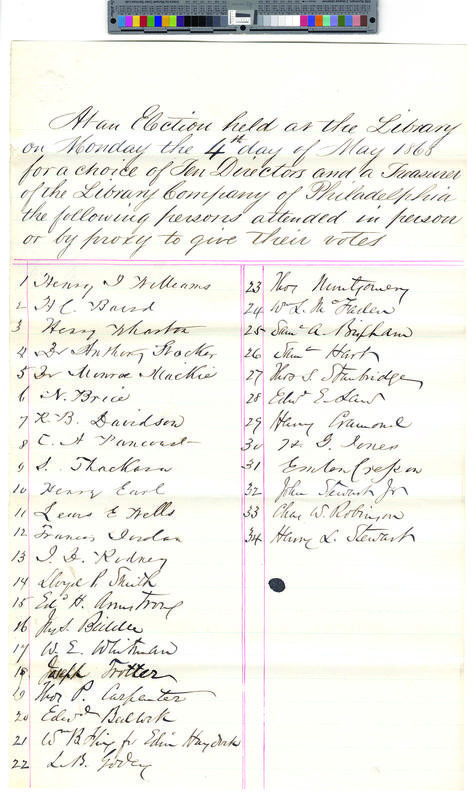 At an Election held at the Library
on Monday the 4th day of May 1868
for a choice of Ten Directors and a Treasurer
of the Library Company of Philadelphia
the following persons attended in person
or by proxy to give their votes
1 Henry J Williams
2 H C Baird
3 Henry Wharton
4 Dr Anthony Stocker
5 Dr Monroe Mackie
6 N. Brice
7 R. B. Davidson
8 C. A Pancoast
9 S. Thackara
10 Henry Earl
11 Lewis E Wells
12 Francis Jordan
13 J. D. Rodney
14 Lloyd P. Smith
15 Edw H. Armstrong
16 Jas. S. Biddle
17 W. E. Whitman
18 Joseph Trotter
19 Thos P. Carpenter
20 Edwd
21 Wm for Edwin Haydock
22 L. A. Godey
23 Thos Montgomery
24 W L McFaden
25 Saml A. Bispham
26 Saml Hart
27 Thos S. Stanbridge
28 Edw E. Law
29 Henry Cramond
30 Jones
31 Emlen Cresson
32 John Stewart Jr
33 Chas W. Robinson
34 Henry L. Stewart